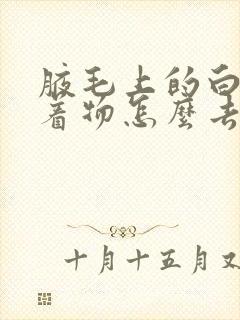 腋毛上的白
着物怎麼去
十月十五月